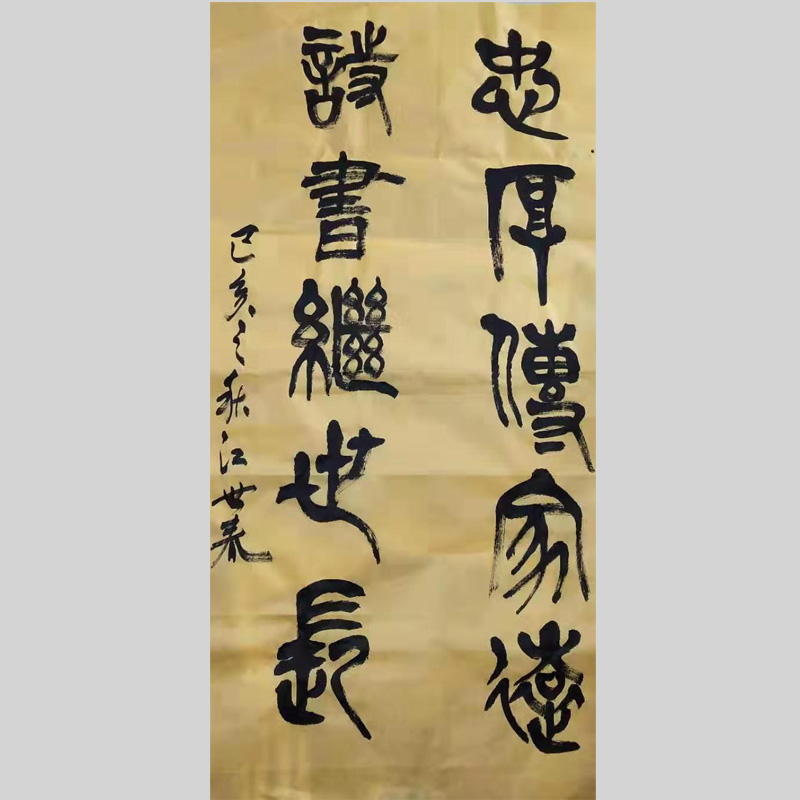 忠厚傳家遠
詩書繼世長
己亥之秋江世春